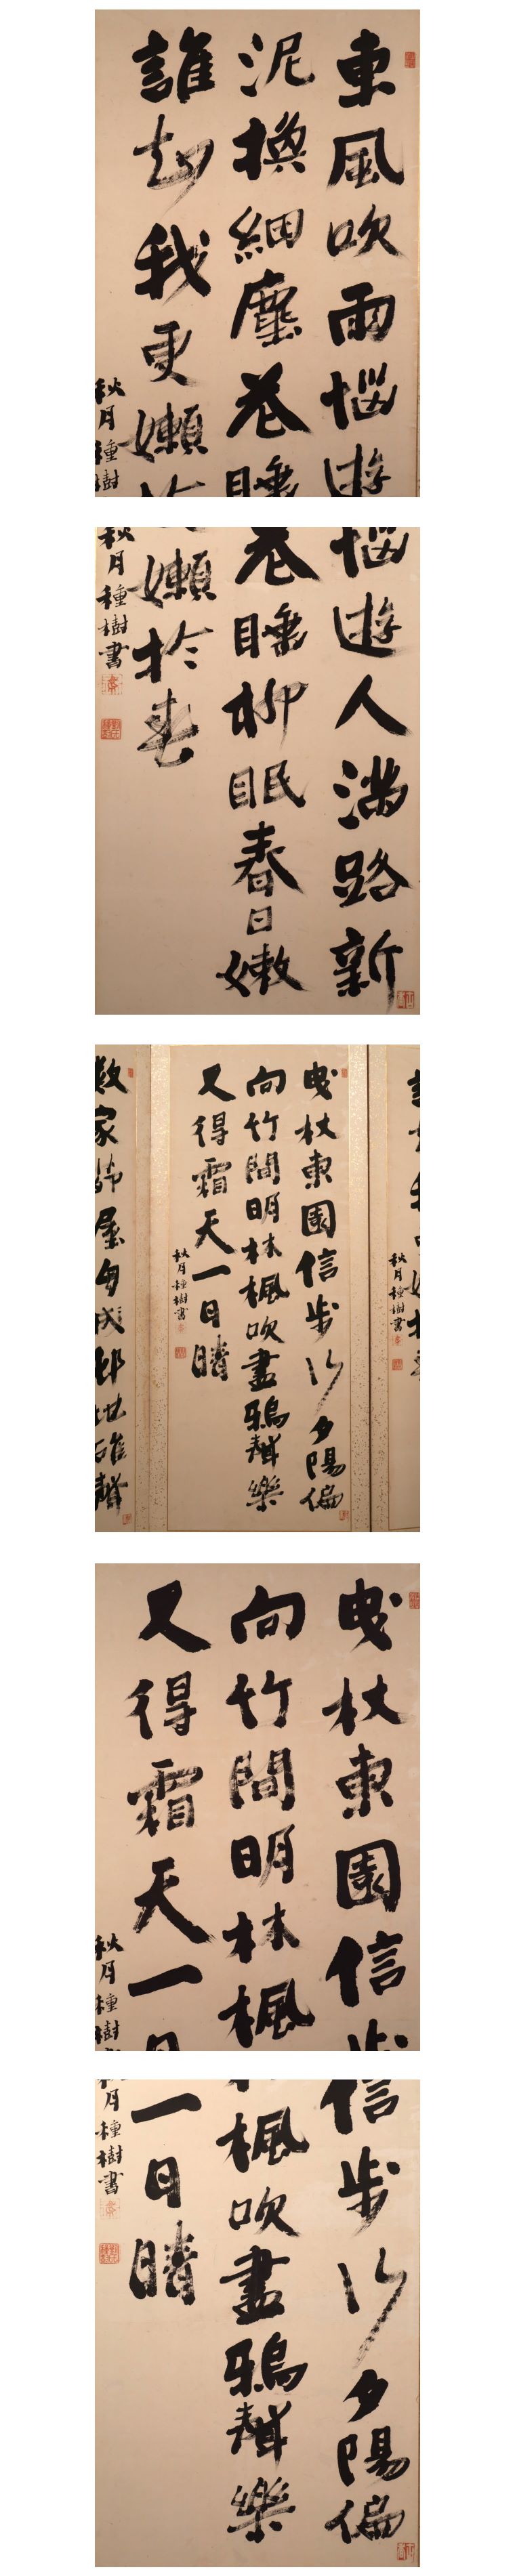 東風吹雨惱遊
泥換細塵花睡
誰知我更嬾
秋月種樹
惱遊人滿路新
花睡柳眠春自嬾
嬾於春
秋月種樹書
秋月種樹書
曳杖東園信步行夕陽偏
向竹間明林楓吹盡鴉聲樂
又得霜天一日晴
秋月種樹書
數家茅屋自成邨地碓聲
曳杖東園信
向竹間明林楓
又得霜天一
秋月種樹
信步行夕陽偏
楓吹盡鴉聲樂
一日晴
月種樹書